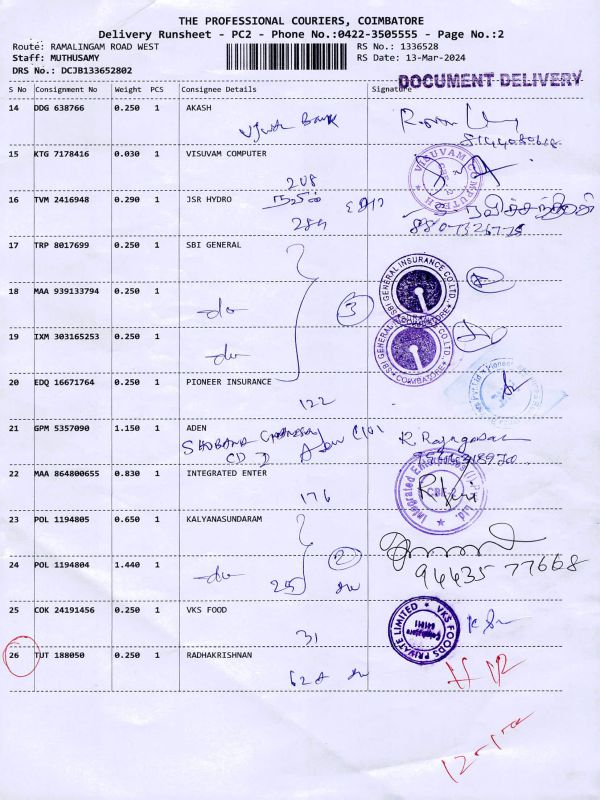 THE PROFESSIONAL COURIERS, COIMBATORE
Delivery Runsheet - PC2 - Phone No.:0422-3505555 - Page No.:2
Route: RAMALINGAM ROAD WEST RS No.: 1336528
Staff: MUTHUSAMY RS Date: 13-Mar-2024
DRS No.: DCJB133652802
DOCUMENT DELIVERY
S No Consignment No Weight PCS Consignee Details Signature
14 DDG 638766 0.250 1 AKASH
Bank
15 KTG 7178416 0.030 1 VISUVAM COMPUTER
VISUVAM COMPUTER
208
16 TVM 2416948 0.290 1 JSR HYDRO
289
17 TRP 8017699 0.250 1 SBI GENERAL
SBI GENERAL INSURANCE CO.LTD.
18 MAA 939133794 0.250 1
-do- 3
COIMBATORE
19 IXM 303165253 0.250 1
SBI GENERAL INSURANCE CO.LTD.
-do-
COIMBATORE
20 EDQ 16671764 0.250 1 PIONEER INSURANCE
122
21 GPM 5357090 1.150 1 ADEN
SHOBANA
22 MAA 864800655 0.830 1 INTEGRATED ENTER
Integrated Enterprises Ltd.
176
23 POL 1194805 0.650 1 KALYANASUNDARAM
24 POL 1194804 1.440 1
-do- 2
94435 77668
25 COK 24191456 0.250 1 VKS FOOD
VKS FOODS PRIVATE LIMITED
31
26 TUT 188050 0.250 1 RADHAKRISHNAN
628